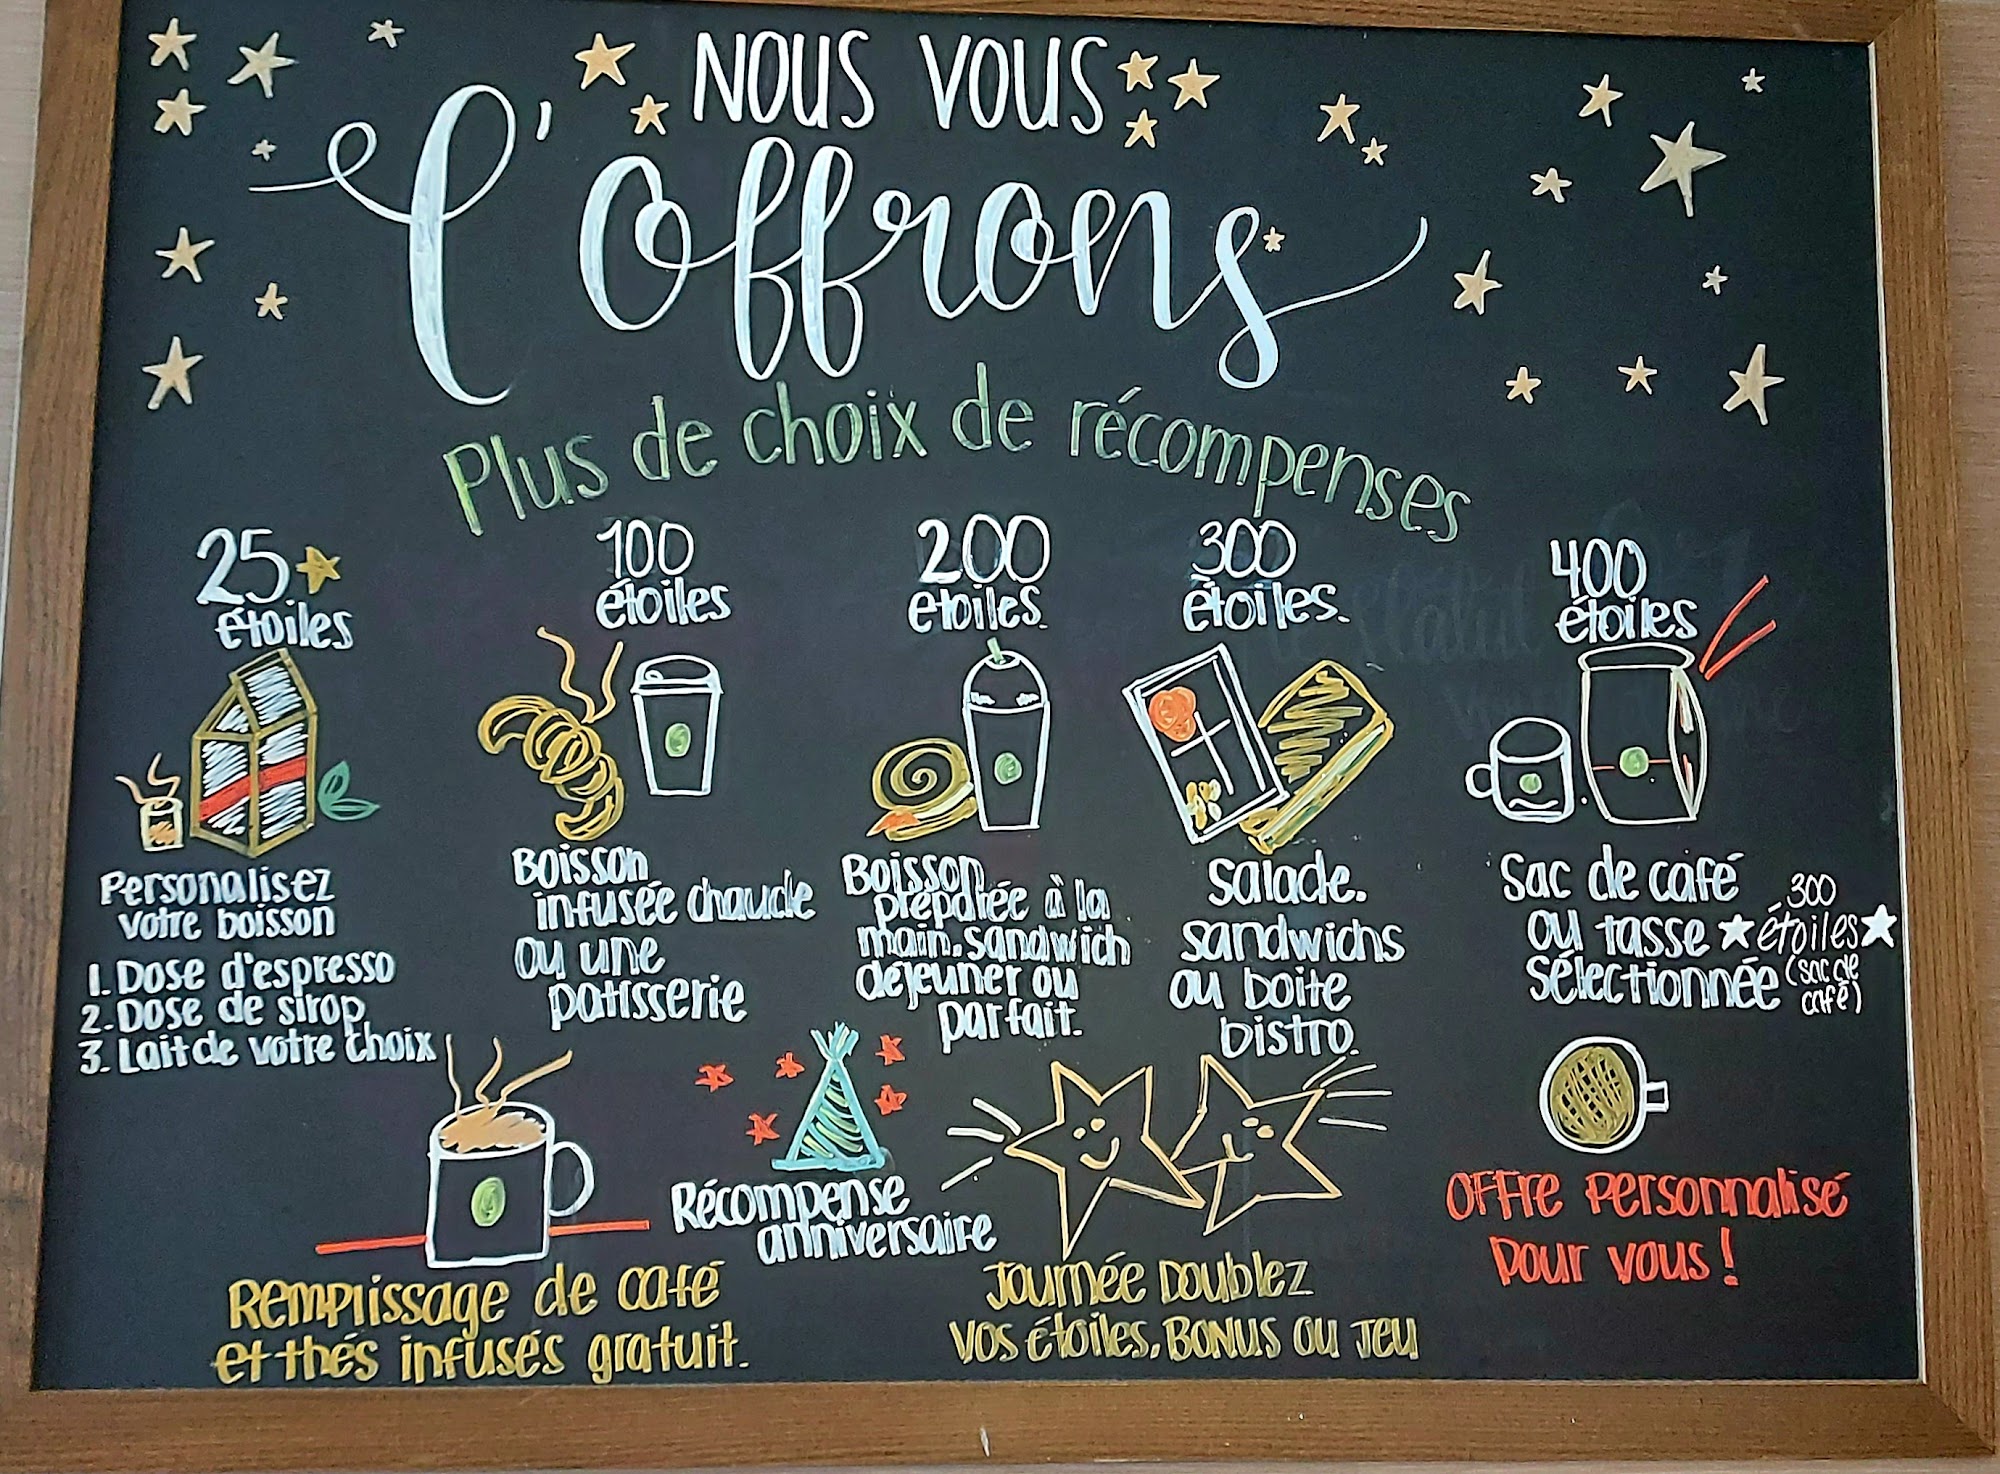 NOUS VOUS
l'offrons
Plus de choix de récompenses
25
étoiles
Personalisez
votre boisson
1. Dose d'espresso
2. Dose de sirop
3. Lait de votre choix
100
étoiles
Boisson
infusée chaude
ou une
patisserie
200
etoiles.
Boisson
préparée à la
main, sandwich
déjeuner ou
parfait.
300
étoiles.
Salade.
sandwichs
ou boite
bistro.
400
étoiles
Sac de café
ou tasse
sélectionnée
300
étoiles
(sac de
café)
Remplissage de café
et thés infusés gratuit.
Récompense
anniversaire
Journée Doublez
vos étoiles, Bonus ou Jeu
Offre personnalisé
pour vous!